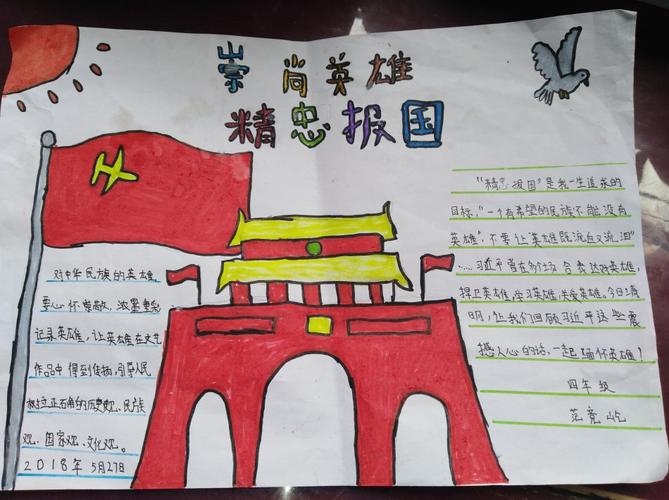 崇尚英雄
精忠报国
对中华民族的英雄,
要心怀崇敬,浓墨重彩
记录英雄,让英雄在文艺
作品中得到传扬,引导人民
树立正确的历史观、民族
观、国家观、文化观。
2018年5月27日
"精忠报国"是我一生追求的
目标。"一个有希望的民族不能没有
英雄","不要让英雄既流血又流泪"
……习近平曾在多个场合表达对英雄,
捍卫英雄,学习英雄,关爱英雄,今日清
明,让我们回顾习近平这些震
撼人心的话,一起缅怀英雄!
四年级
范竞屹